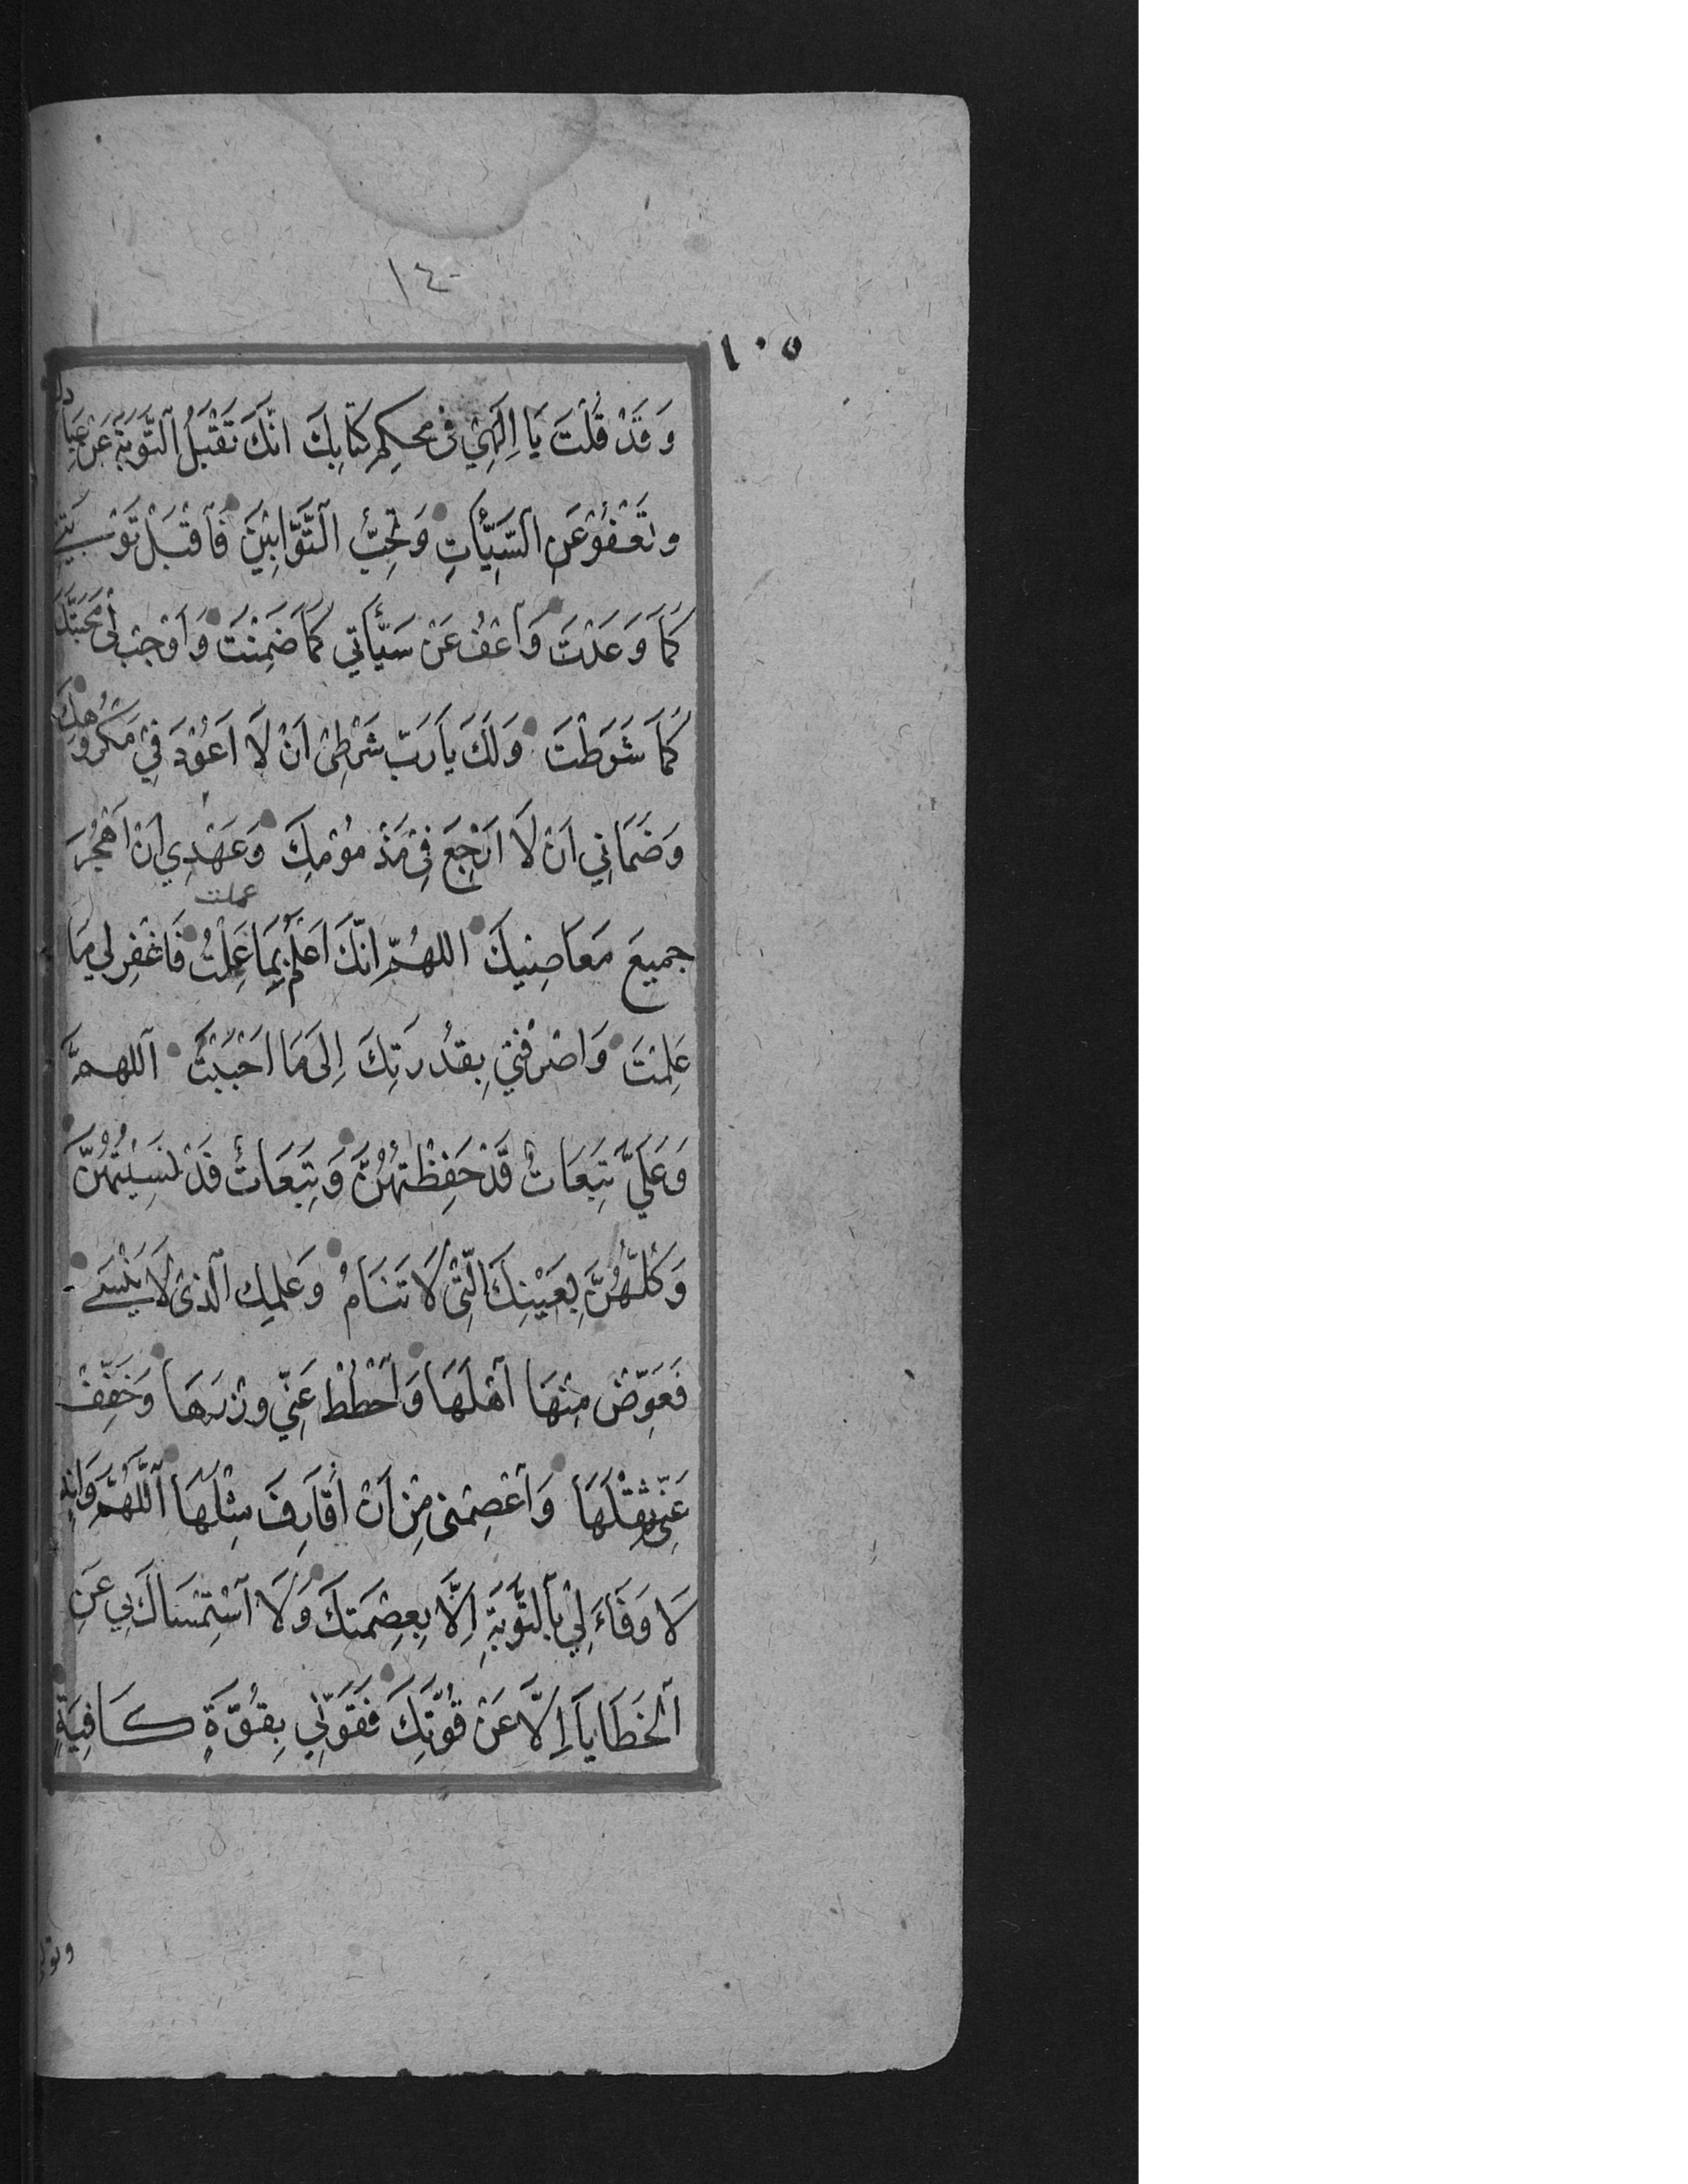 ١٤٠
١٠٥
وَقَدْ قُلْتَ يَا اِلٰهِيْ فِى مُحكِمِ كِتَابِكَ انَّكَ تَقْبَلُ التَّوْبَةَ عَنْ عِبَادِكَ
وتَعْفُوْ عَنِ السَّيِّأٰتِ وَتُحِبُّ التَّوَّابِيْنَ فَاقْبَلْ تَوْبَتِيْ
كَمَا وَعَدْتَ وَاعْفُ عَنْ سَيِّأٰتِي كَمَا ضَمِنْتَ وَاَوْجِبْ لِى مَحَبَّتَكَ
كَمَا شَرَطْتَ وَلَكَ يَارَبِّ شَرْطِىْ اَنْ لَا اَعُوْدَ فِيْ مَكْرُوْهِكَ
وَضَمَانِي اَنْ لَا اَرْجِعَ فِىْ مَذْمُوْمِكَ وَعَهْدِي اَنْ اَهْجُرَ
عملت
جميعَ مَعَاصِيْكَ اللهُمَّ اِنَّكَ اَعْلَمُ بِمَا عَمِلْتُ فَاغْفِرْ لِي مَا
عَلِمْتَ وَاصْرِفْنِيْ بِقدُرَتِكَ اِلَى مَا اَحْبَبْتَ اَللهمَّ
وَعَلَيَّ تَبِعَاتٌ قَدْ حَفِظْتُهُنَّ وَتَبِعَاتٌ قَدْ نَسِيْتُهُنَّ
وَكُلُّهُنَّ بِعَيْنِكَ الَّتِىْ لَا تَنَامُ وَعلمِكَ الَّذِى لَا يَنْسَى
فَعَوِّضْ مِنْهَا اَهْلَهَا وَاحْطُطْ عَنِّي وِزْرَهَا وَخَفِّفْ
عَنِّى ثِقْلَهَا وَاعْصِمْنى مِنْ اَنْ اُقَارِفَ مِثْلَهَا اَللّٰهُمَّ وَانِّهُ
لَا وَفَاءَ لِيْ بِالتَّوْبَةِ اِلَّا بِعِصْمَتِكَ وَلَا اسْتِمْسَاكَ بِي عَنِ
اَلْخَطَايَا اِلَّا عَنْ قُوَّتِكَ فَقَوِّنِي بِقُوَّةٍ كَافِيَةٍ